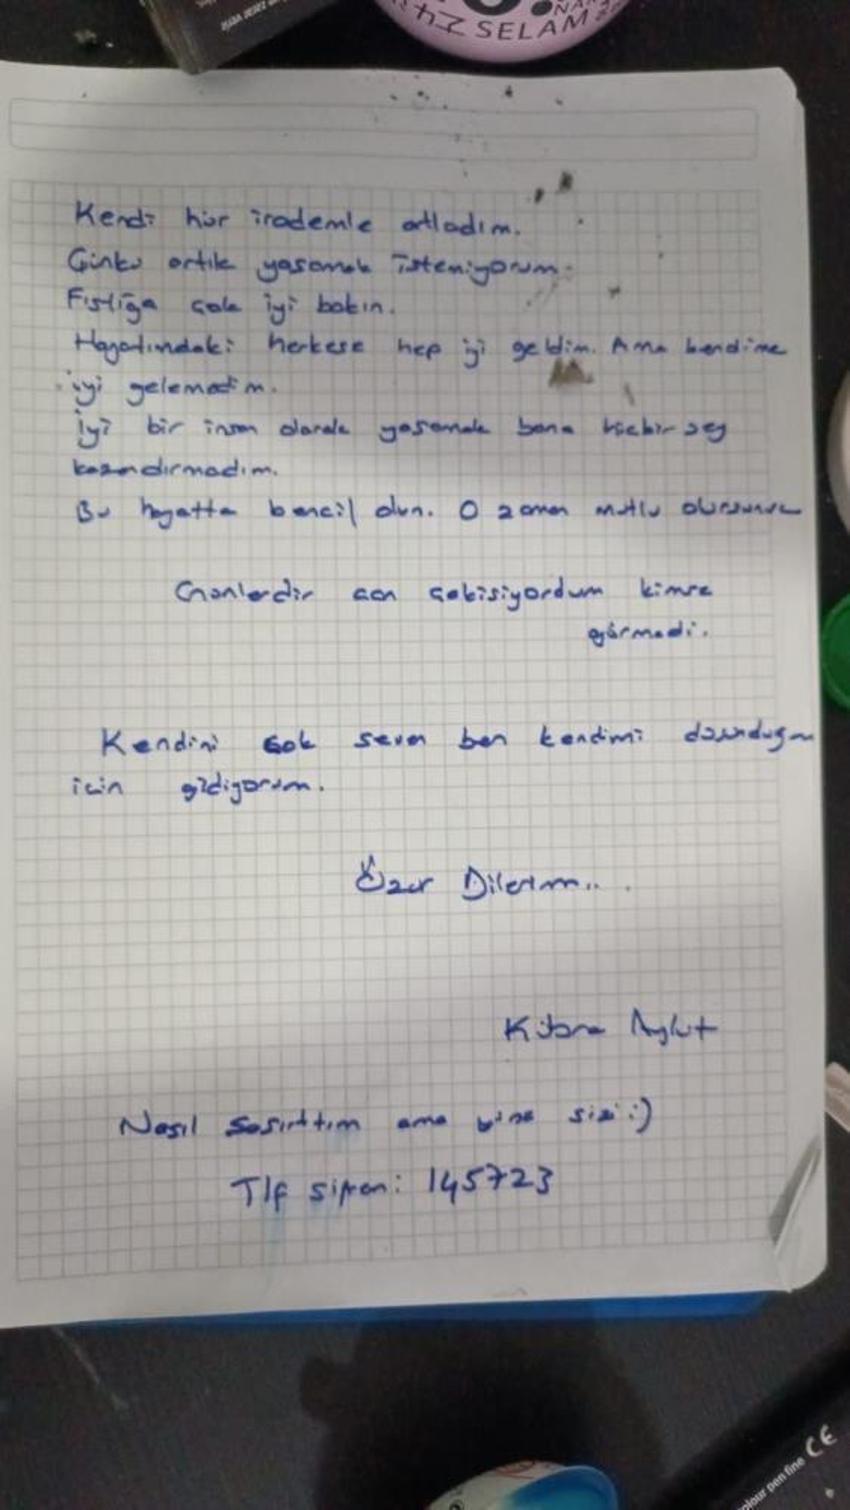 SELAM
Kendi hür irademle atladım.
Çünkü artık yaşamak istemiyorum.
Fıstığa çok iyi bakın.
Hayatımdaki herkese hep iyi geldim. Ama kendime
iyi gelemedim.
İyi bir insan olarak yaşamak bana hiçbir şey
kazandırmadım.
Bu hayatta bencil olun. O zaman mutlu olursunuz
Günlerdir can çekişiyordum kimse
görmedi.
Kendini çok seven ben kendimi düşündüğüm
için gidiyorum.
Özür Dilerim...
Nasıl şaşırttım ama yine sizi :)
Tlf şifrem: 145723
colour pen fine CE